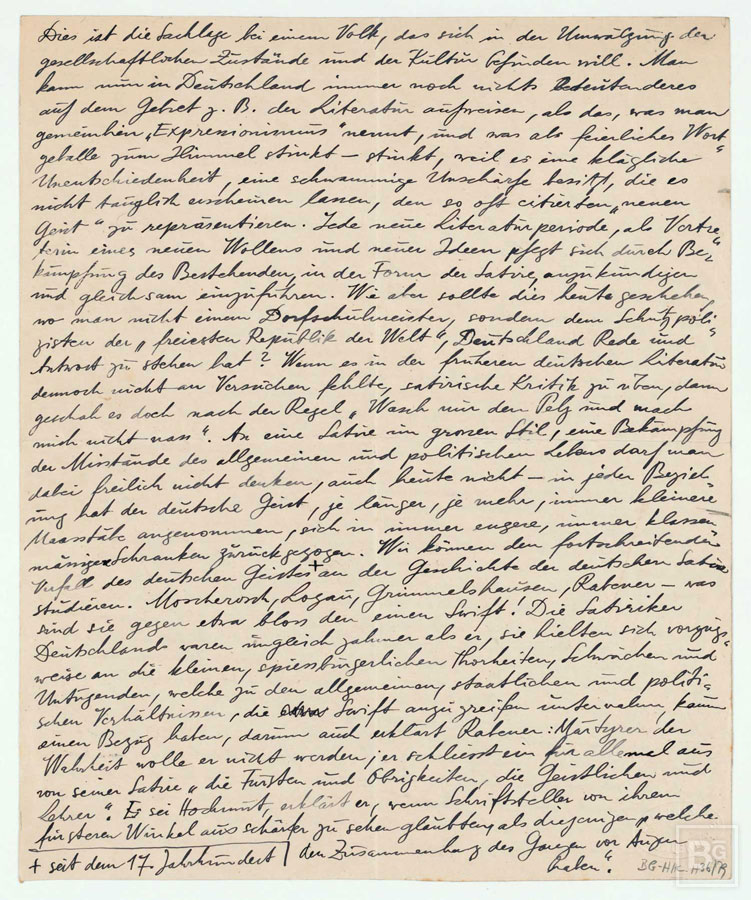 Dies ist die Sachlage bei einem Volk, das sich in der Umwälzung der
gesellschaftlichen Zustände und der Kultur befinden will. Man
kann nun in Deutschland immer noch nichts Bedeutenderes
auf dem Gebiet z. B. der Literatur aufweisen, als das, was man
gemeinhin „Expressionismus" nennt, und was als feierliches Wort-
geballe zum Himmel stinkt – stinkt, weil es eine klägliche
Unentschiedenheit, eine schwammige Unschärfe besitzt, die es
nicht tauglich erscheinen lassen, den so oft citierten „neuen
Geist" zu repräsentieren. Jede neue Literaturperiode, als Vertre-
terin eines neuen Wollens und neuer Ideen pflegt sich durch Be-
kämpfung des Bestehenden, in der Form der Satire, anzukündigen
und gleichsam einzuführen. Wie aber sollte dies heute geschehen,
wo man nicht einem Dorfschulmeister, sondern dem Schutzpoli-
zisten der „freiesten Republik der Welt", Deutschland Rede und
Antwort zu stehen hat? Wenn es in der früheren deutschen Literatur
dennoch nicht an Versuchen fehlte, satirische Kritik zu üben, dann
geschah es doch nach der Regel „Wasch mir den Pelz und mach
mich nicht nass". An eine Satire im grossen Stil, eine Bekämpfung
der Misstände des allgemeinen und politischen Lebens darf man
dabei freilich nicht denken, auch heute nicht – in jeder Bezieh-
ung hat der deutsche Geist, je länger, je mehr, immer kleinere
Maasstäbe angenommen, sich in immer engere, immer klassen-
mässigere Schranken zurückgezogen. Wir können den fortschreitenden
Verfall des deutschen Geistes + an der Geschichte der deutschen Satire
studieren. Moscherosch, Logau, Grimmelshausen, Rabener – was
sind sie gegen etwa bloss den einen Swift! Die Satiriker
Deutschlands waren ungleich zahmer als er, sie hielten sich vorzugs-
weise an die kleinen, spiessbürgerlichen Thorheiten, Schwächen und
Untugenden, welche zu den allgemeinen, staatlichen und politi-
schen Verhältnissen, die Swift anzugreifen unternahm, kaum
einen Bezug haben, darum auch erklärt Rabener: Märtyrer der
Wahrheit wolle er nicht werden, er schliesst ein für allemal aus
von seiner Satire „die Fürsten und Obrigkeiten, die Geistlichen und
Lehrer". Es sei Hochmut, erklärt er, wenn Schriftsteller von ihrem
finsteren Winkel aus schärfer zu sehen glaubten, als diejenigen „welche
+ seit dem 17. Jahrhundert | den Zusammenhang des Ganzen vor Augen
haben".
BG-HHC H36/79
BG